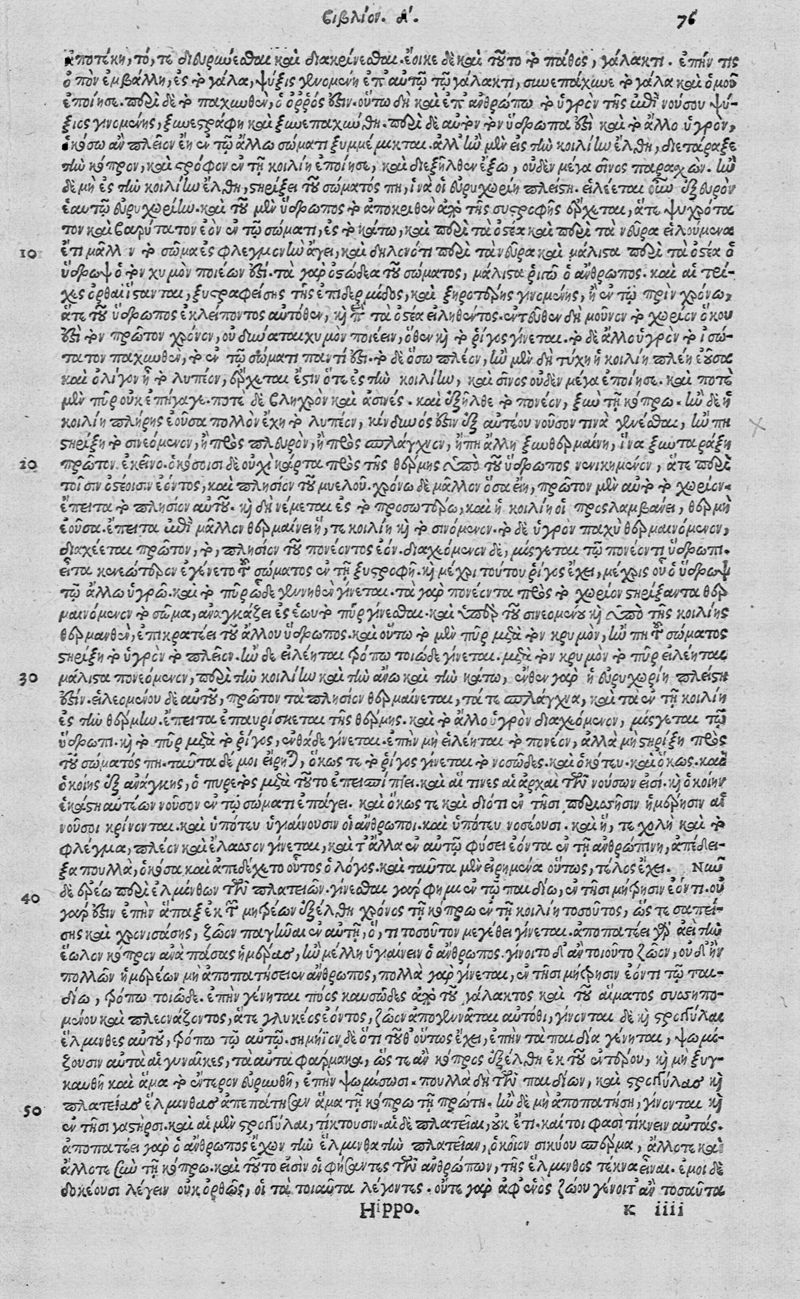 Βιβλίον. Δ΄. 76
ἀποτίκη, τό, τε διεῤῥωεῖσθαι καὶ διακρίνεσθαι. ἔοικε δὲ καὶ τοῦτο τὸ πάθος, γάλακτι. ἐπήν τις
ὀπὸν ἐμβάλλῃ, ἐς τὸ γάλα, ψύξις γινομένη ἐπ' αὐτῷ τῷ γάλακτι, συνεπάχωσε τὸ γάλα καὶ ὁμοῦ
ἐποίησε. περὶ δὲ τὸ παχυνθὲν, ὁ ὀῤῥός ἐστιν. οὕτω δὴ καὶ ἐπ' ἀνθρώπῳ τὸ ὑγρὸν τῆς ἀπὸ νούσου ψύ-
ξιος γινομένης, ξυνεστράφη καὶ ξυνεπαχώθη. περὶ δὲ αὐτὸν τὸν ὕδρωπά ἐστι καὶ τὸ ἄλλο ὑγρὸν,
ὁκόσω ἂν πλεῖον ἔῃ ἐν τῷ ἄλλῳ σώματι ξυμμεμικται. ἀλλ' ἢν μὲν εἰς τὴν κοιλίην ἔλθῃ, διετάραξε
τὴν κόπρον, καὶ στρόφον ἐν τῇ κοιλίῃ ἐποίησε, καὶ διεξῆλθεν ἔξω, οὐδὲν μέγα σῖνος παρασχόν. ἢν
δὲ μὴ ἐς τὴν κοιλίην ἔλθῃ, στηρίξει τοῦ σώματός πῃ, ἵνα οἱ εὐρυχωρίη πλείστη. εἰλέεται
ἑαυτῷ εὐρυχωρίην. καὶ τοῦ μὲν ὕδρωπος τὸ ἀποκριθὲν ἀπὸ τῆς συστροφῆς ἔρχεται, ἅτε ψυχρότα
τον καὶ βαρύτατον ἐὸν ἐν τῷ σώματι, ἐς τὸ κάτω, καὶ περὶ τὰ ὀστέα καὶ περὶ τὰ νεῦρα εἰλούμενα
10 ἔτι μᾶλλον τὸ σῶμα ἐς φλεγμονὴν ἄγει, καὶ δηλονότι περὶ τὰ νεῦρα καὶ μάλιστα περὶ τὰ ὀστέα ὁ
ὕδρωψ ὁ τὸν χυμὸν ποιέων ἐστί. τὰ γὰρ ὀστώδεα τοῦ σώματος, μάλιστα ῥιγοῖ ὁ ἄνθρωπος. καὶ αἱ τρί-
χες ὀρθαὶ ἵστανται, ξυστραφείσης τῆς ἐπιδερμίδος, καὶ ξηροτέρης γινομένης, ἢ ἐν τῷ πρὶν χρόνῳ,
ἅτε τοῦ ὕδρωπος ἐκλείποντος αὐτόθεν, κὴ τὰ ὀστέα εἰληθέντος. ἐντεῦθεν δὴ μοῦνον τὸ χωρίον ὅκου
ἐστὶ τὸν πρῶτον χρόνον, οὐ δύναται χυμὸν ποιέειν, ὅθεν κὴ τὸ ῥῖγος γίνεται. τὸ δὲ ἄλλο ὑγρὸν τὸ ἰσό-
τατον παχυνθὲν, τὸ ἐν τῷ σώματι παντί ἐστι. τὸ δὲ ὅσῳ πλέον, ἢν μὲν δὴ τύχῃ ἡ κοιλίη πλέη ἐοῦσα
καὶ ὀλίγον ᾖ τὸ λυπέον, ἔρχεται ἔστιν ὅτε ἐς τὴν κοιλίην, καὶ σῖνος οὐδὲν μέγα ἐποίησε. καὶ ποτὲ
μὲν πῦρ οὐκ ἐπήγαγε. ποτὲ δὲ βληχρὸν καὶ ἀσινές. καὶ ἐξῆλθε τὸ πονέον, ξὺν τῇ κόπρῳ. ἢν δὲ ἡ
κοιλίη πλήρης ἐοῦσα πολλὸν ἔχῃ τὸ λυπέον, κίνδυνός ἐστιν ἐξ αὐτέου νοῦσόν τινα γενέσθαι, ἢν πῃ
στηρίξῃ τὸ σινεόμενον, ἢ πρὸς πλευρὸν, ἢ πρὸς σπλάγχνον, ἤ πῃ ἄλλῃ ξυνθερμαίνῃ, ἵνα ξυνταράξῃ
20 πρῶτον ἐκεῖνο. ὁκόσοισι δὲ οὐχὶ κάρτα πρὸς τῆς θέρμης ὑπὸ τοῦ ὕδρωπος νενικημένον, ἅτε περὶ
τοῖσιν ὀστέοισιν ἐόντος, καὶ πλησίον τοῦ μυελοῦ. χρόνῳ δὲ μᾶλλον ὅσα ἔῃ, πρῶτον μὲν αὐτὸ τὸ χωρίον.
ἔπειτα τὸ πλησίον αὐτοῦ. κὴ δὴ νέμεται ἐς τὸ προσωτέρω, καὶ ἡ κοιλίη οἱ προσλαμβάνει, θερμὴ
ἐοῦσα. ἔπειτα ἐπὶ μᾶλλον θερμαίνει ἥ, τε κοιλίη κὴ τὸ σινόμενον. τὸ δὲ ὑγρὸν παχὺ θερμαινόμενον,
διαχέεται πρῶτον, τὸ, πλησίον τοῦ πονέοντος ἐόν. διαχεόμενον δὲ, μίσγεται τῷ πονέοντι ὕδρωπι.
εἶτα κενεώτερον ἐγένετο τοῦ σώματος ἐν τῇ ξυστροφῇ. κὴ μέχρι τούτου ῥῖγος ἔχει, μέχρις οὗ ὁ ὕδρωψ
τῷ ἄλλῳ ὑγρῷ. καὶ τὸ πῦρ ὧδε γεννηθὲν γίνεται. τὰ γὰρ πονέοντα πρὸς τὸ χωρίον στηρίξαντα θερ
μαινόμενον τὸ σῶμα, ἀναγκάζει ἐς ἑωυτὸ πῦρ γίνεσθαι. καὶ ὑπὸ τοῦ σινεομένου κὴ ὑπὸ τῆς κοιλίης
θερμανθὲν, ἐπικρατέει τοῦ ἄλλου ὕδρωπος. καὶ οὕτω τὸ μὲν πῦρ μετὰ τὸν κρυμὸν, ἢν πῃ τοῦ σώματος
στηρίξῃ τὸ ὑγρὸν τὸ πλεῖον. ἢν δὲ εἰλέηται τρόπῳ τοιῷδε γίνεται. μετὰ τὸν κρυμὸν τὸ πῦρ εἰλέηται
30 μάλιστα πονεόμενον, περὶ τὴν κοιλίην καὶ τὴν ἄνω καὶ τὴν κάτω, ἔνθεν γὰρ ἡ εὐρυχωρίη πλείστη
ἐστίν. εἰλεομένου δὲ αὐτοῦ, πρῶτον τὰ πλησίον θερμαίνεται, τά τε σπλάγχνα, καὶ τὰ ἐν τῇ κοιλίῃ
ἐς τὴν θέρμην. ἔπειτα ἐπαυρίσκεται τῆς θέρμης. καὶ τὸ ἄλλο ὑγρὸν διαχεόμενον, μίσγεται τῷ
ὕδρωπι. κὴ τὸ πῦρ μετὰ τὸ ῥῖγος, ἐνθάδε γίνεται. ἐπὴν μὴ εἰλέηται τὸ πονέον, ἀλλὰ μὴ στηρίξῃ πρὸς
τοῦ σώματός πῃ. ταῦτα δέ μοι εἴρηται, ὅκως τε τὸ ῥῖγος γίνεται τὸ νοσῶδες. καὶ ὁκότευ. καὶ ὅκως. καὶ
ὁκοίης ἐξ ἀνάγκης, ὁ πυρετὸς μετὰ τοῦτο ἐπεισπίπτει. καὶ αἵ τινες αἱ ἀρχαὶ τῶν νούσων εἰσί. κὴ ὁκοίην
ἑκάστη αὐτέων νοῦσον ἐν τῷ σώματι ἐπάγει. καὶ ὅκως τε καὶ διότι ἐν τῇσι περισσῇσιν ἡμέρῃσιν αἱ
νοῦσοι κρίνονται. καὶ ὑπότευ ὑγιαίνουσιν οἱ ἄνθρωποι. καὶ ὑπότευ νοσέουσι. καὶ ἥ, τε χολὴ καὶ τὸ
φλέγμα, πλέον καὶ ἔλασσον γίνεται, καὶ τ' ἄλλα ἐν αὐτῷ φύσει ἐόντα ἐν τῇ ἀνθρωπίνῃ, ἀπέδει-
ξα πουλλὰ, ὁκόσα καὶ ἀπεδέχετο οὗτος ὁ λόγος. καὶ ταῦτα μὲν εἰρημένα οὕτως, τέλος ἔχει. Νῦν
40 δὲ ἐρέω περὶ ἑλμίνθων τῶν πλατειῶν. γίνεσθαι γάρ φημι ἐν τῷ παιδίῳ, ἐν τῇσι μήτρῃσιν ἐόντι. οὐ
γάρ ἐστιν ἐπὴν ἅπαξ ἐκ τῶν μητρέων ἐξέλθῃ χρόνος τῇ κόπρῳ ἐν τῇ κοιλίῃ τοσοῦτος, ὥς τε σαπεί-
σης καὶ χρονισάσης, ζῶον παγῆναι ἐν αὐτῇ, ὅ, τι τοσοῦτον μεγέθει γίνεται. ἀποπατέει γὰρ ἀεὶ τὴν
ἕωλον κόπρον ἀνὰ πάσας ἡμέρας, ἢν μέλλῃ ὑγιαίνειν ὁ ἄνθρωπος. γίνοιτο δ' ἂν τοιοῦτο ζῶον, οὐδ' ἢν
πολλῶν ἡμερέων μὴ ἀποπατήσειεν ἄνθρωπος, πολλὰ γὰρ γίνεται, ἐν τῇσι μήτρῃσιν ἐόντι τῷ παι-
δίῳ, τρόπῳ τοιῷδε. ἐπὴν γένηται πῦος καυσῶδες ἀπὸ τοῦ γάλακτος καὶ τοῦ αἵματος συσσηπο-
μένου καὶ πλεονάζοντος, ἅτε γλυκέος ἐόντος, ζῶον ἀπογεννᾶται αὐτόθι, γίνονται δὲ κὴ στρογγύλαι
ἕλμινθες αὐτοῦ, τρόπῳ τῷ αὐτῷ. σημήϊον δὲ ὅτι τοῦθ' οὕτως ἔχει, ἐπὴν τὰ παιδία γένηται, ψωμί-
ζουσιν αὐτὰ αἱ γυναῖκες, τὰ αὐτὰ φάρμακα, ὥς τε ἂν κόπρος ἐξέλθῃ ἐκ τοῦ ἐντέρου, κὴ μὴ ξυγ-
καυθῇ καὶ ἅμα τὸ ἔντερον εὐρυνθῇ, ἐπὴν ψωμίσωσι. πουλλὰ δὴ τῶν παιδίων, καὶ στρογγύλας κὴ
50 πλατείας ἕλμινθας ἀπεπάτησαν ἅμα τῇ κόπρῳ τῇ πρώτῃ. ἢν δὲ μὴ ἀποπατήσῃ, γίνονται κὴ
ἐν τῇσι γαστρσι. καὶ αἱ μὲν στρογγύλαι, τίκτουσιν. αἱ δὲ πλατεῖαι, οὐκ ἔτι. καί τοι φασὶ τίκτειν αὐτάς.
ἀποπατέει γὰρ ὁ ἄνθρωπος ἔχων τὴν ἕλμινθα τὴν πλατεῖαν, ὁκοῖον σικύου σπέρμα, ἄλλοτε καὶ
ἄλλοτε ξὺν τῇ κόπρῳ. καὶ τοῦτό εἰσιν οἱ φήσαντες τῶν ἀνθρώπων, τῆς ἕλμινθος τέκνα εἶναι. ἐμοὶ δὲ
δοκέουσι λέγειν οὐκ ὀρθῶς, οἱ τὰ τοιαῦτα λέγοντες. οὔτε γὰρ ἀφ' ἑνὸς ζώου γένοιτ' ἂν τοσαῦτα
Hippo. K iiii